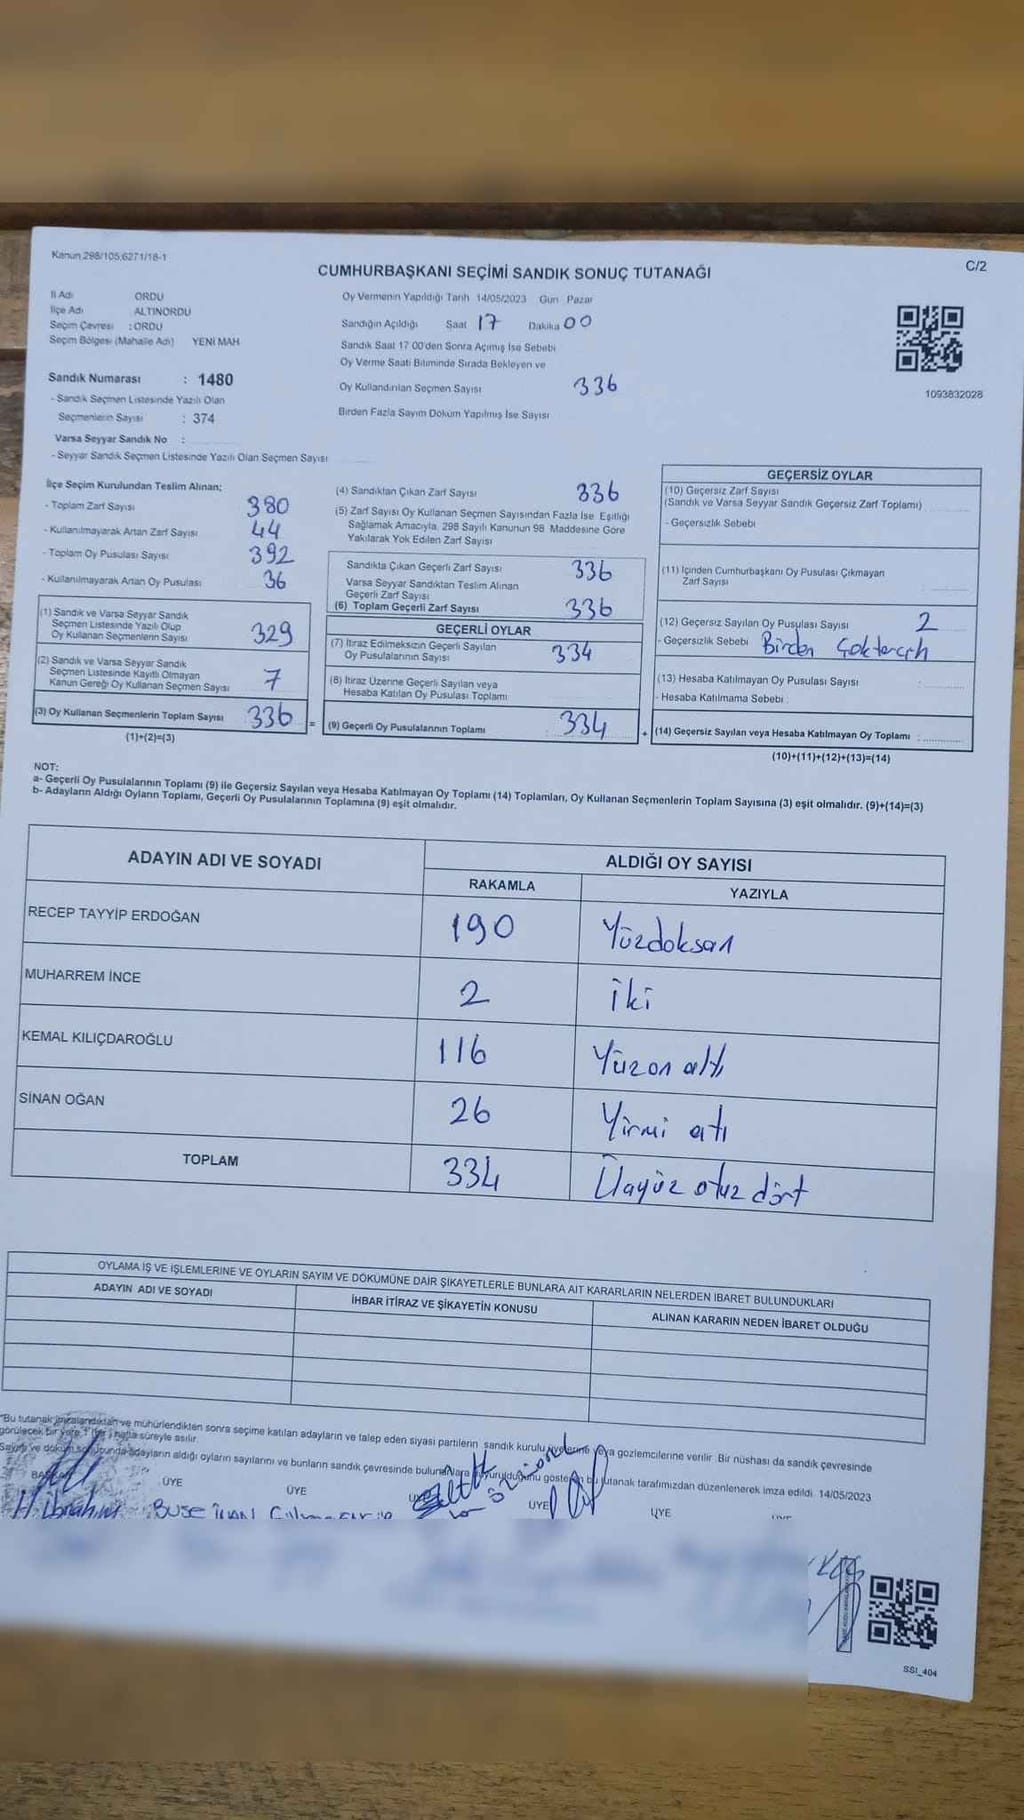 Kanun 298/105;6271/18-1
C/2
CUMHURBAŞKANI SEÇİMİ SANDIK SONUÇ TUTANAĞI
İl Adı ORDU
İlçe Adı ALTINORDU
Seçim Çevresi : ORDU
Seçim Bölgesi (Mahalle Adı) YENİ MAH
Sandık Numarası : 1480
- Sandık Seçmen Listesinde Yazılı Olan
Seçmenlerin Sayısı : 374
Varsa Seyyar Sandık No :
- Seyyar Sandık Seçmen Listesinde Yazılı Olan Seçmen Sayısı
Oy Vermenin Yapıldığı Tarih 14/05/2023 Gün Pazar
Sandığın Açıldığı Saat 17 Dakika 00
Sandık Saat 17 00'den Sonra Açımış İse Sebebi
Oy Verme Saati Bitiminde Sırada Bekleyen ve
Oy Kullandırılan Seçmen Sayısı 336
Birden Fazla Sayım Döküm Yapılmış İse Sayısı
1093832028
İlçe Seçim Kurulundan Teslim Alınan;
- Toplam Zarf Sayısı 380
- Kullanılmayarak Artan Zarf Sayısı 44
- Toplam Oy Pusulası Sayısı 392
- Kullanılmayarak Artan Oy Pusulası 36
(1) Sandık ve Varsa Seyyar Sandık
Seçmen Listesinde Yazılı Olup
Oy Kullanan Seçmenlerin Sayısı 329
(2) Sandık ve Varsa Seyyar Sandık
Seçmen Listesinde Kayıtlı Olmayan
Kanun Gereği Oy Kullanan Seçmen Sayısı 7
(3) Oy Kullanan Seçmenlerin Toplam Sayısı 336 =
(1)+(2)=(3)
(4) Sandıktan Çıkan Zarf Sayısı 336
(5) Zarf Sayısı Oy Kullanan Seçmen Sayısından Fazla İse Eşitliği
Sağlamak Amacıyla, 298 Sayılı Kanunun 98 Maddesine Göre
Yakılarak Yok Edilen Zarf Sayısı
Sandıkta Çıkan Geçerli Zarf Sayısı 336
Varsa Seyyar Sandıktan Teslim Alınan
Geçerli Zarf Sayısı
(6) Toplam Geçerli Zarf Sayısı 336
GEÇERLİ OYLAR
(7) İtiraz Edilmeksizin Geçerli Sayılan
Oy Pusulalarının Sayısı 334
(8) İtiraz Üzerine Geçerli Sayılan veya
Hesaba Katılan Oy Pusulası Toplamı
(9) Geçerli Oy Pusulalarının Toplamı : 334 +
GEÇERSİZ OYLAR
(10) Geçersiz Zarf Sayısı
(Sandık ve Varsa Seyyar Sandık Geçersiz Zarf Toplamı)
- Geçersizlik Sebebi
(11) İçinden Cumhurbaşkanı Oy Pusulası Çıkmayan
Zarf Sayısı
(12) Geçersiz Sayılan Oy Pusulası Sayısı 2
- Geçersizlik Sebebi Birden Çoktercih
(13) Hesaba Katılmayan Oy Pusulası Sayısı
- Hesaba Katılmama Sebebi
(14) Geçersiz Sayılan veya Hesaba Katılmayan Oy Toplamı :
(10)+(11)+(12)+(13)=(14)
NOT:
a- Geçerli Oy Pusulalarının Toplamı (9) ile Geçersiz Sayılan veya Hesaba Katılmayan Oy Toplamı (14) Toplamları, Oy Kullanan Seçmenlerin Toplam Sayısına (3) eşit olmalıdır. (9)+(14)=(3)
b- Adayların Aldığı Oyların Toplamı, Geçerli Oy Pusulalarının Toplamına (9) eşit olmalıdır.
ADAYIN ADI VE SOYADI
ALDIĞI OY SAYISI
RAKAMLA YAZIYLA
RECEP TAYYİP ERDOĞAN 190 Yüzdoksan
MUHARREM İNCE 2 iki
KEMAL KILIÇDAROĞLU 116 Yüzon altı
SİNAN OĞAN 26 Yirmi atı
TOPLAM 334 Üçyüz otuz dört
OYLAMA İŞ VE İŞLEMLERİNE VE OYLARIN SAYIM VE DÖKÜMÜNE DAİR ŞİKAYETLERLE BUNLARA AİT KARARLARIN NELERDEN İBARET BULUNDUKLARI
ADAYIN ADI VE SOYADI İHBAR İTİRAZ VE ŞİKAYETİN KONUSU ALINAN KARARIN NEDEN İBARET OLDUĞU
"Bu tutanak imzalandıktan ve mühürlendikten sonra seçime katılan adayların ve talep eden siyasi partilerin sandık kurulu üyelerine veya gözlemcilerine verilir. Bir nüshası da sandık çevresinde
görülecek bir yere 1 hafta süreyle asılır.
Sayım ve döküm sonucunda adayların aldığı oyların sayılarını ve bunların sandık çevresinde duyurulduğunu gösteren bu tutanak tarafımızdan düzenlenerek imza edildi. 14/05/2023
BAŞKAN ÜYE ÜYE ÜYE ÜYE
H. İbrahim BUSE İNAN
SSI_404